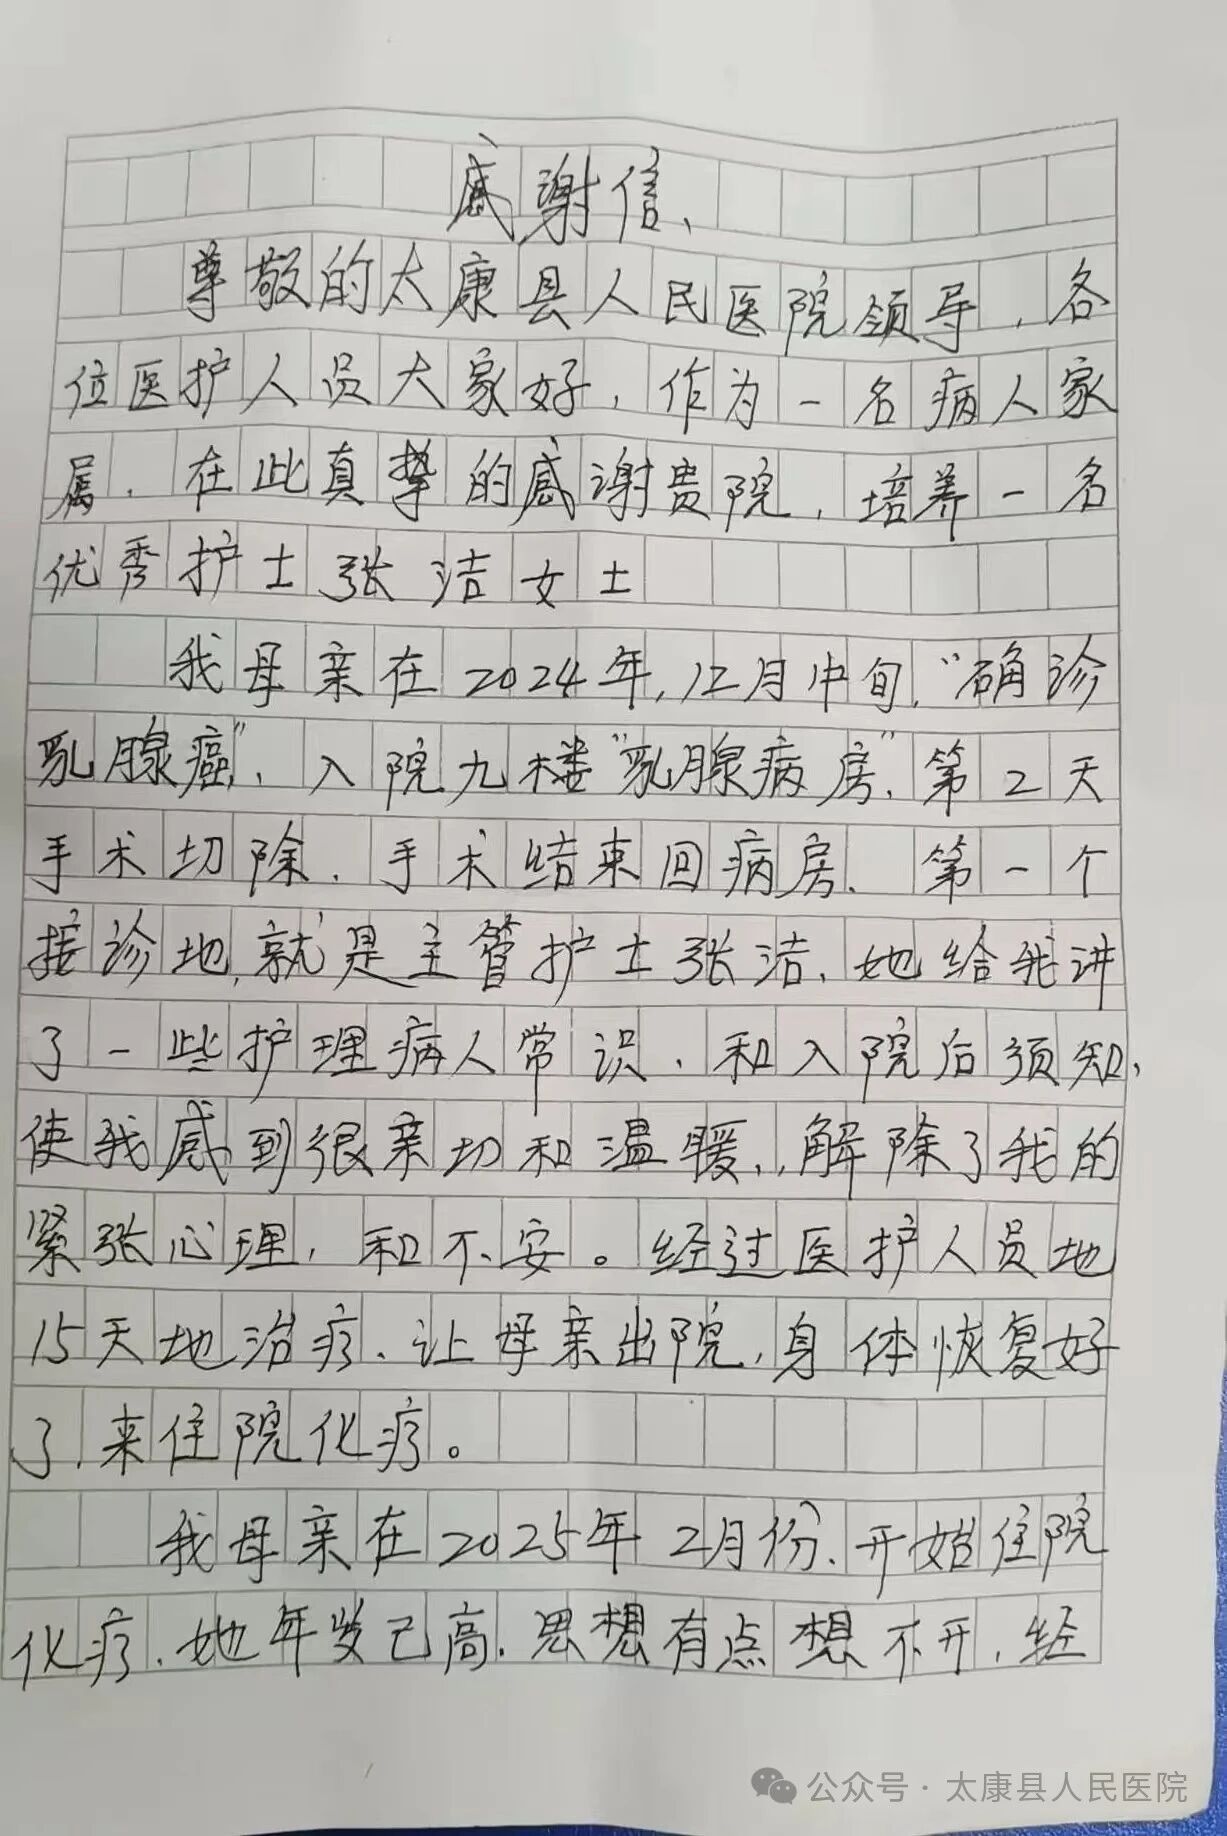 感谢信、
尊敬的太康县人民医院领导,各
位医护人员大家好,作为一名病人家
属.在此真挚的感谢贵院,培养一名
优秀护士张洁女士
我母亲在2024年,12月中旬,“确诊
乳腺癌”,入院九楼“乳腺病房”,第2天
手术切除.手术结束回病房.第一个
接诊地,就是主管护士张洁,她给我讲
了一些护理病人常识,和入院后须知,
使我感到很亲切和温暖,,解除了我的
紧张心理,和不安。经过医护人员地
15天地治疗.让母亲出院,身体恢复好
了,来住院化疗。
我母亲在2025年2月份,开始住院
化疗.她年岁已高.思想有点想不开,经
公众号·太康县人民医院